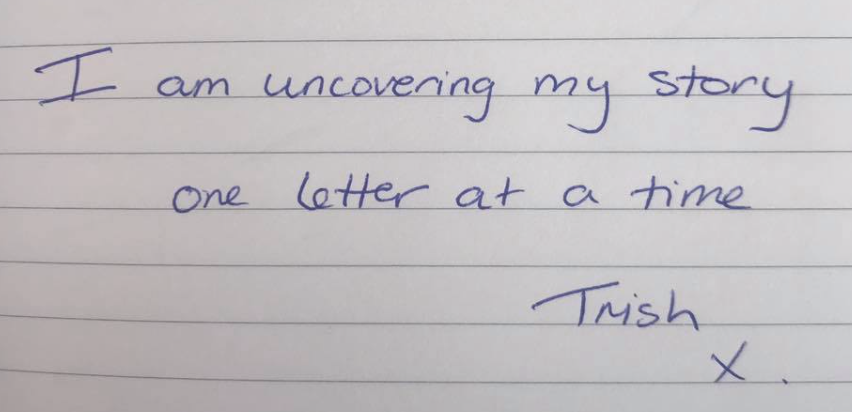 I am uncovering my story
one letter at a time
Trish
x.